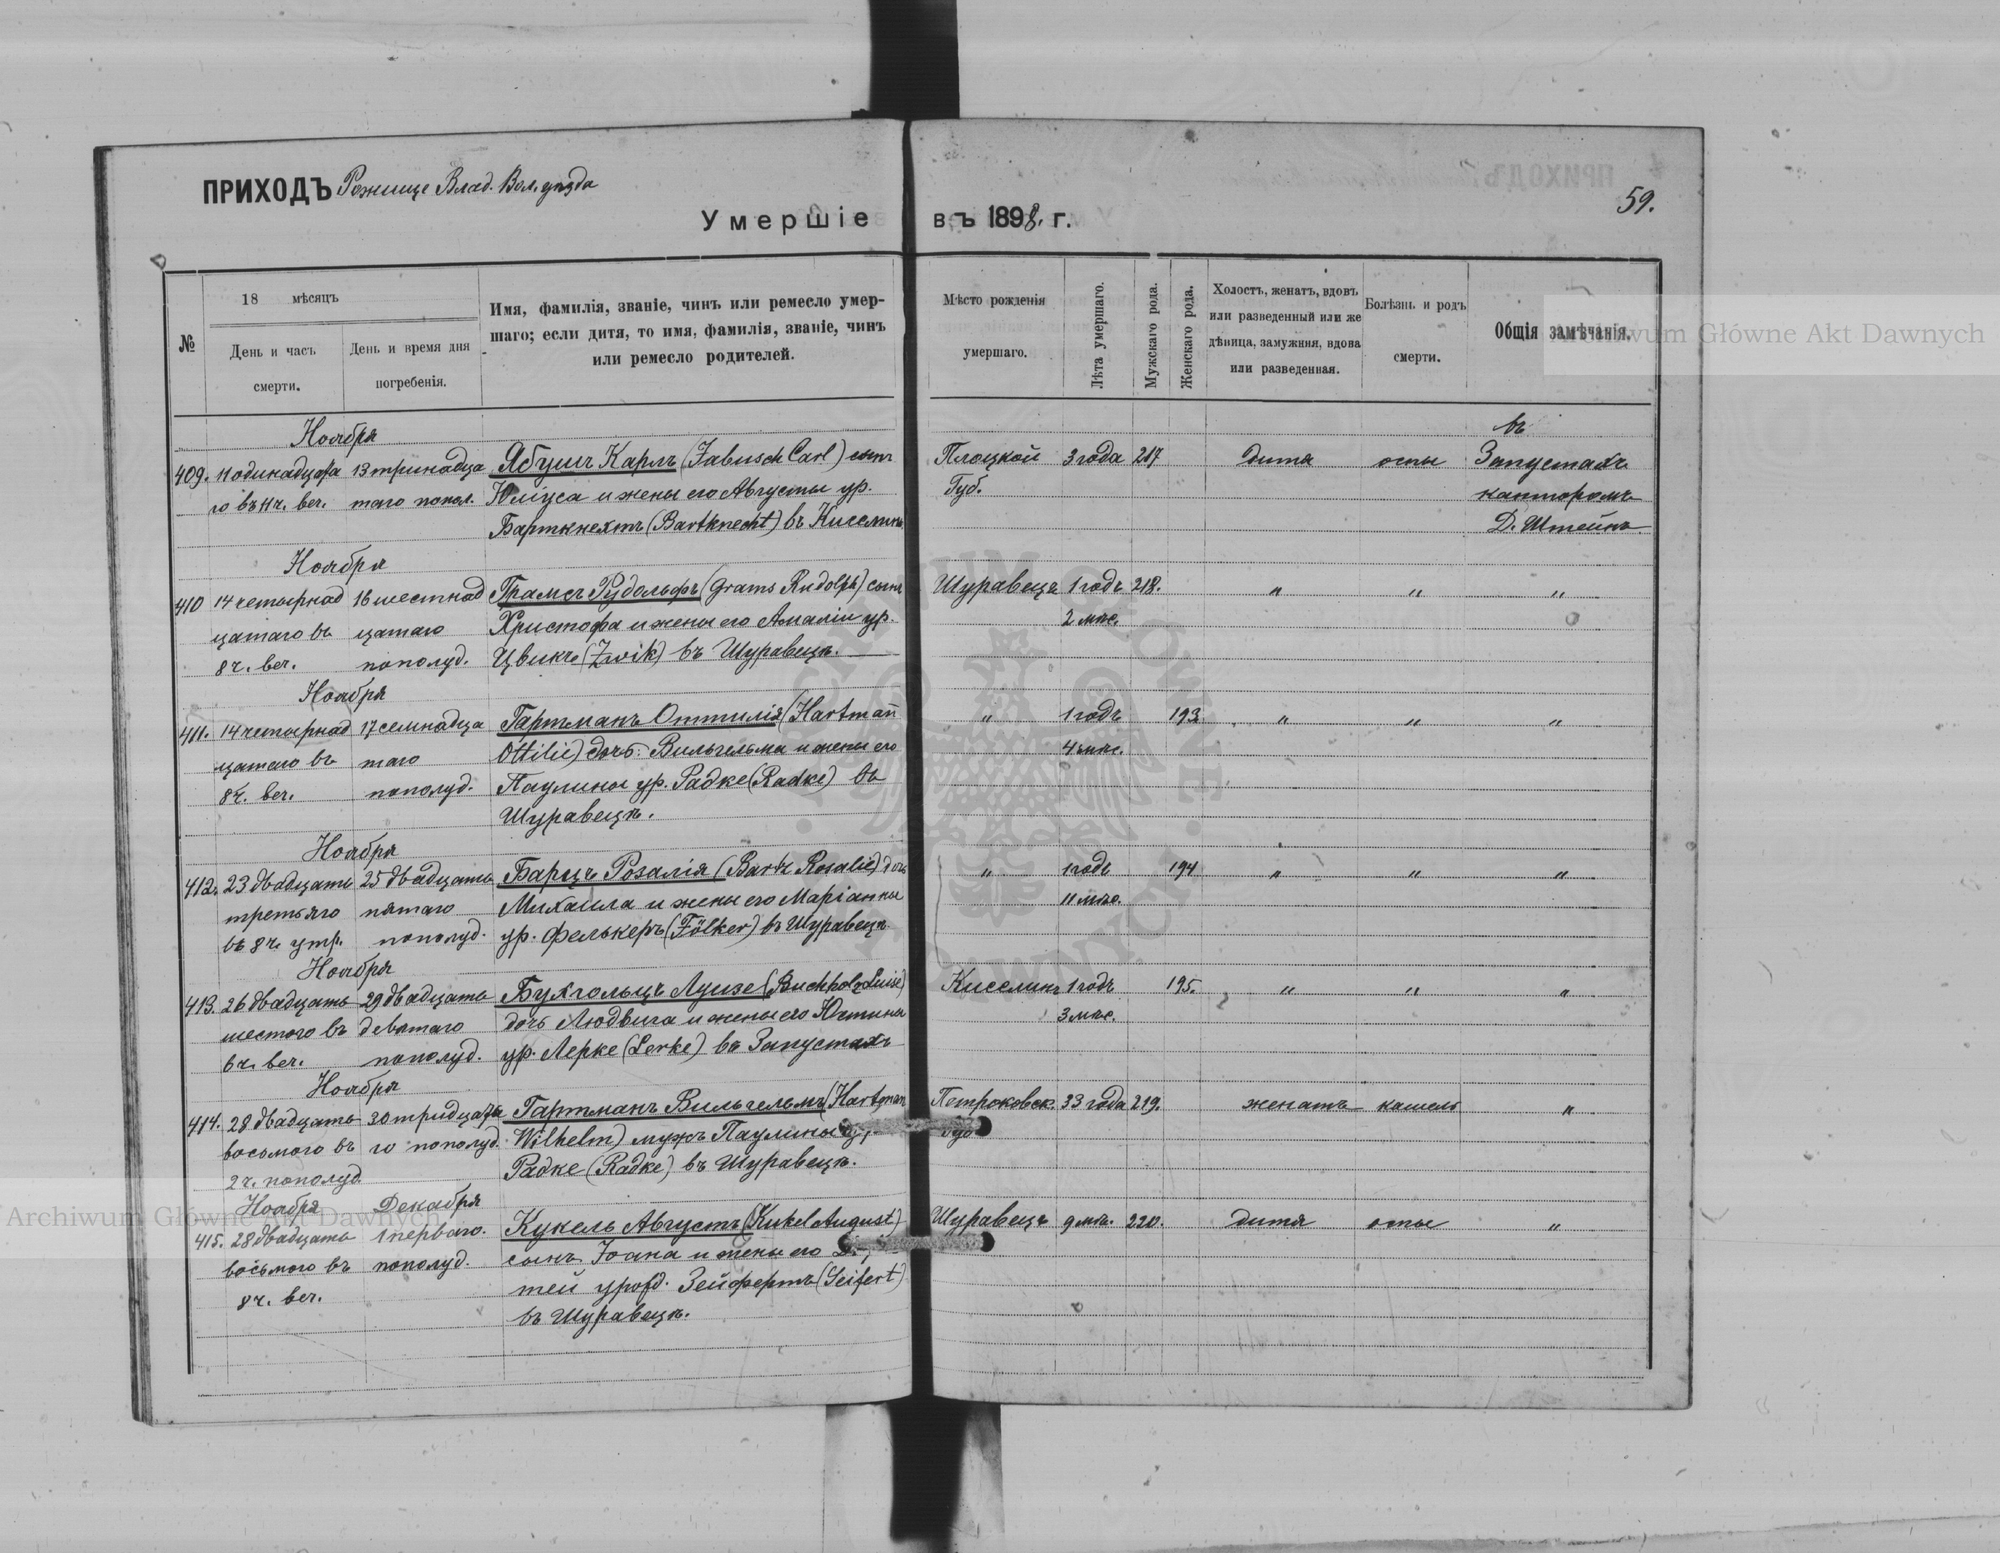 ПРИХОДЪ Рожище Влад. Вол. уѣзда
59.
Умершіе въ 1898. г.
№
18 мѣсяцъ
День и часъ смерти.
День и время дня погребенія.
Имя, фамилія, званіе, чинъ или ремесло умер-
шаго; если дитя, то имя, фамилія, званіе, чинъ
или ремесло родителей.
Мѣсто рожденія
умершаго.
Лѣта умершаго.
Мужскаго рода.
Женскаго рода.
Холостъ, женатъ, вдовъ
или разведенный или же
дѣвица, замужняя, вдова
или разведенная.
Болѣзнь и родъ
смерти.
Общія замѣчанія.
Archiwum Główne Akt Dawnych
Ноября въ
409. 11 одинадцата 13 тринадца Ябушъ Карлъ (Jabusch Carl) сынъ Плоцкой 3 года 217 дитя оспы Запустахъ
го въ 11 ч. веч. таго попол. Юліуса и жены его Августы ур. Губ. канторомъ
Барткнехтъ (Bartknecht) въ Киселинѣ Д. Штейнъ
Ноября
410 14 четырнад 16 шестнад Грамсъ Рудольфъ (Grams Rudolph) сынъ Щуравецъ 1 годъ 218. " " "
цатаго въ цатаго Христофа и жены его Амаліи ур. 2 мѣс.
8 ч. веч. пополуд. Цвикъ (Zwik) въ Щуравецъ.
Ноября
411. 14 четырнад 17 семнадца Гартманъ Оттилія (Hartmañ " 1 годъ 193. " " "
цатаго въ таго Ottilie) дочь: Вильгельма и жены его 4 мѣс.
8 ч. веч. пополуд. Паулины ур. Радке (Radke) въ
Щуравецъ.
Ноября
412. 23 двадцать 25 двадцать Барцъ Розалія (Bartz Rosalie) дочь " 1 годъ 194 " " "
третьяго пятаго Михаила и жены его Маріанны 11 мѣс.
въ 8 ч. утр. пополуд. ур. Фелькеръ (Fölker) въ Щуравецъ
Ноября
413. 26 двадцать 29 двадцать Бухгольцъ Луизе (Buchholz Luise) Киселинъ 1 годъ 195. " " "
шестого въ девятаго дочь Людвига и жены его Юстины 3 мѣс.
6 ч. веч. пополуд. ур. Лерке (Lerke) въ Запустахъ
Ноября
414. 28 двадцать 30 тридцата Гартманъ Вильгельмъ (Hartman Петроковск. 33 года 219. женатъ кашель "
восьмого въ го пополуд. Wilhelm) мужъ Паулины Губ
2 ч. пополуд. Радке (Radke) въ Щуравецъ.
Ноября Декабря
415. 28 двадцать 1 перваго. Кукель Августъ (Kukel August) Щуравецъ 9 мѣс. 220. дитя оспы "
восьмого въ пополуд. сынъ Іоана и жены его
8 ч. веч. тей урожд. Зейфертъ (Seifert)
въ Щуравецъ.
Archiwum Główne Akt Dawnych